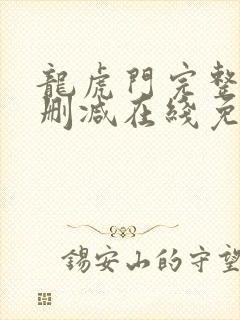 龍虎門完整
刪減在綫免
錫安山的守望